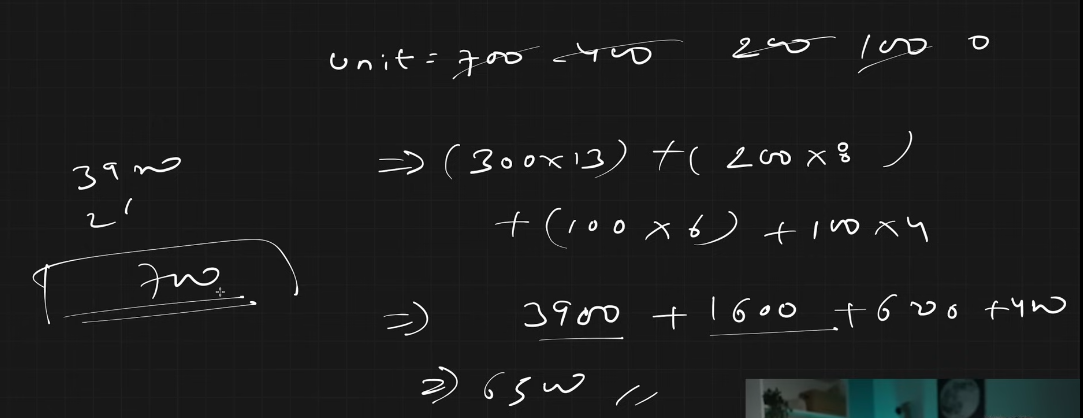 unit = 700 400 200 100 0
3900
⇒ (300×13) + (200×8)
+ (100×6) + 100×4
700
⇒ 3900 + 1600 + 600 + 400
⇒ 6500 //